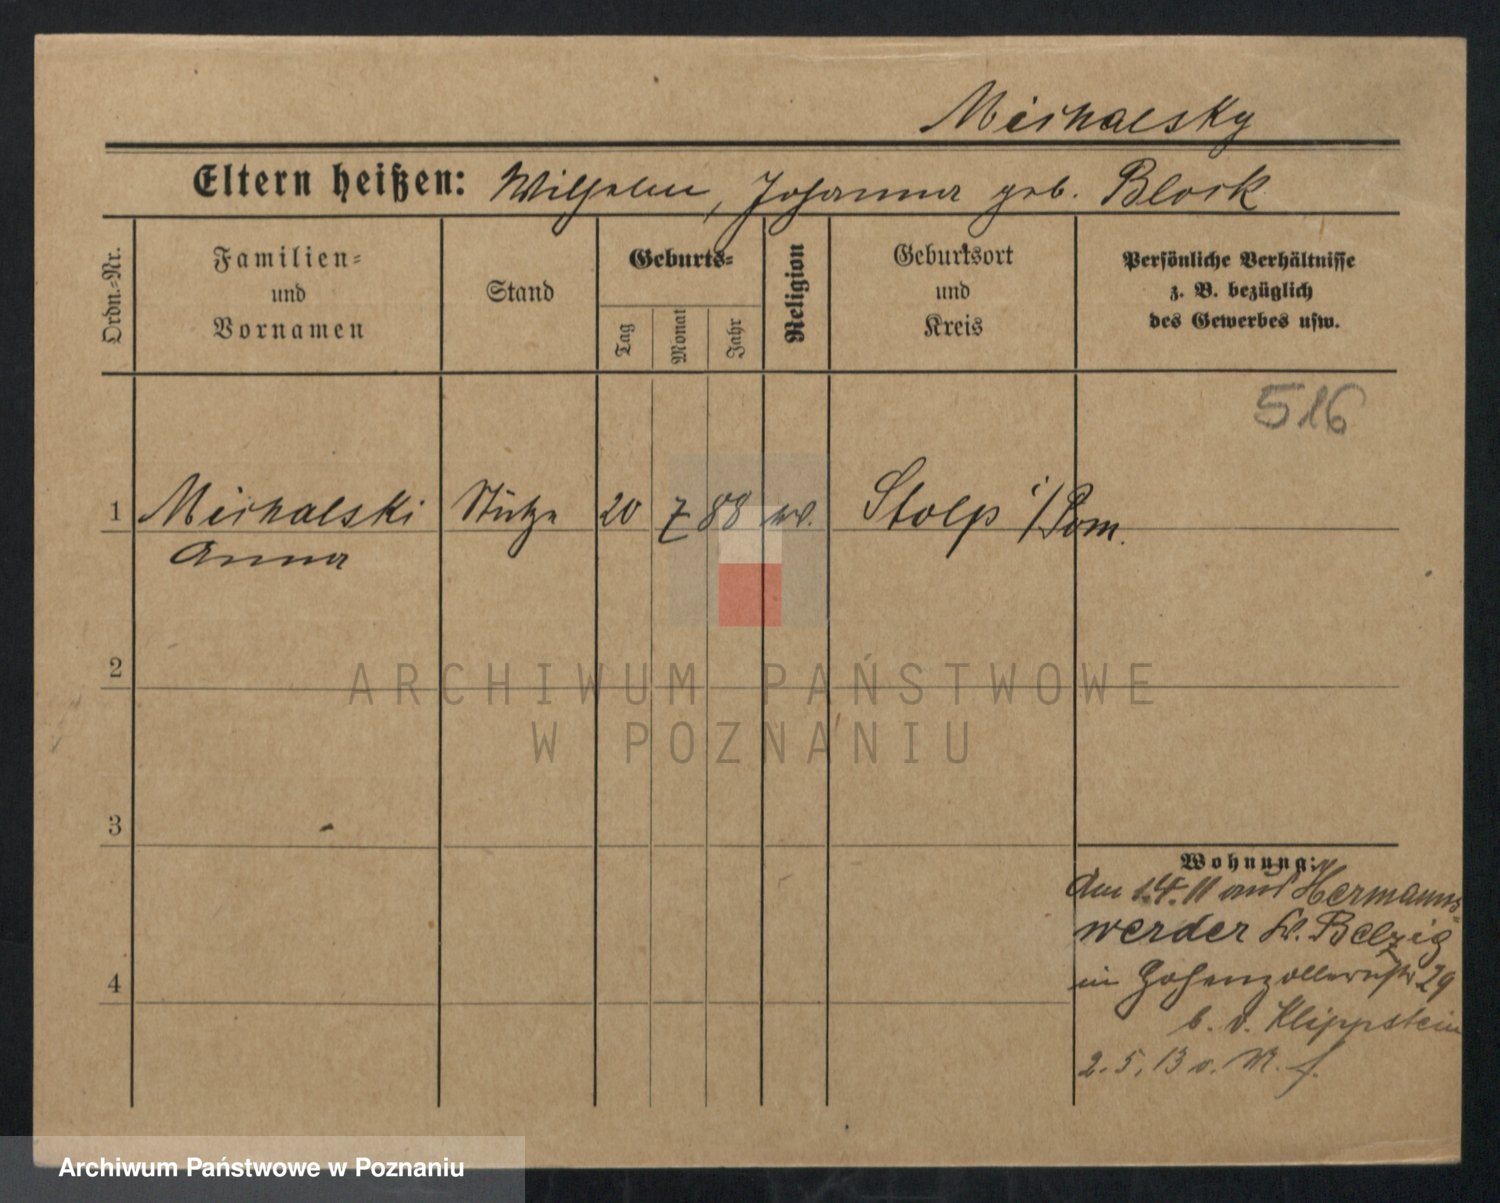 Michalsky
Eltern heißen: Wilhelm, Johanna geb. Block
Ordn.-Nr.
Familien-
und
Vornamen
Stand
Geburts-
Tag
Monat
Jahr
Religion
Geburtsort
und
Kreis
Persönliche Verhältnisse
z. B. bezüglich
des Gewerbes usw.
516
1 Michalski Stütze 20 7 88 ev. Stolp i/Pom.
Anna
2
3
4
Wohnung:
Am 1.4.11 aus Hermanns-
werder Kr. Belzig
in Hohenzollernstr 29
b. v. Klippstein
2.5.13
ARCHIWUM PAŃSTWOWE
W POZNANIU
Archiwum Państwowe w Poznaniu